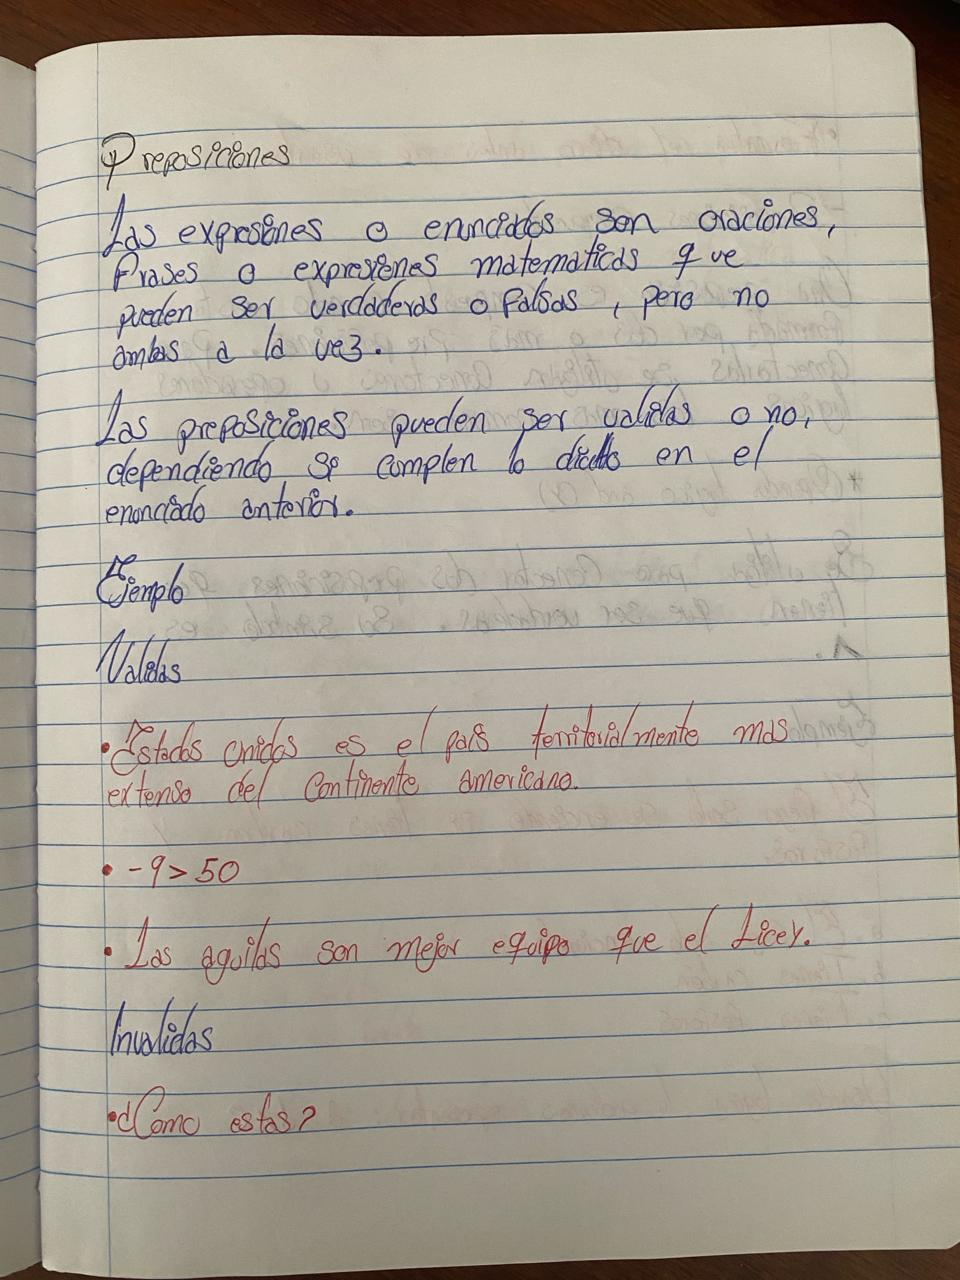 Preposiciones
Las expresiones o enunciados son oraciones,
Frases o expresiones matematicas que
pueden ser verdaderas o falsas, pero no
ambas a la vez.
Las preposiciones pueden ser validas o no,
dependiendo se cumplen lo dicto en el
enonciado anterior.
Ejemplo
Validas
• Estados unidos es el país territorialmente mas
extenso del continente americano.
• -9 > 50
• Las aguilas son mejor equipo que el Licey.
Invalidas
• ¿Como estas?